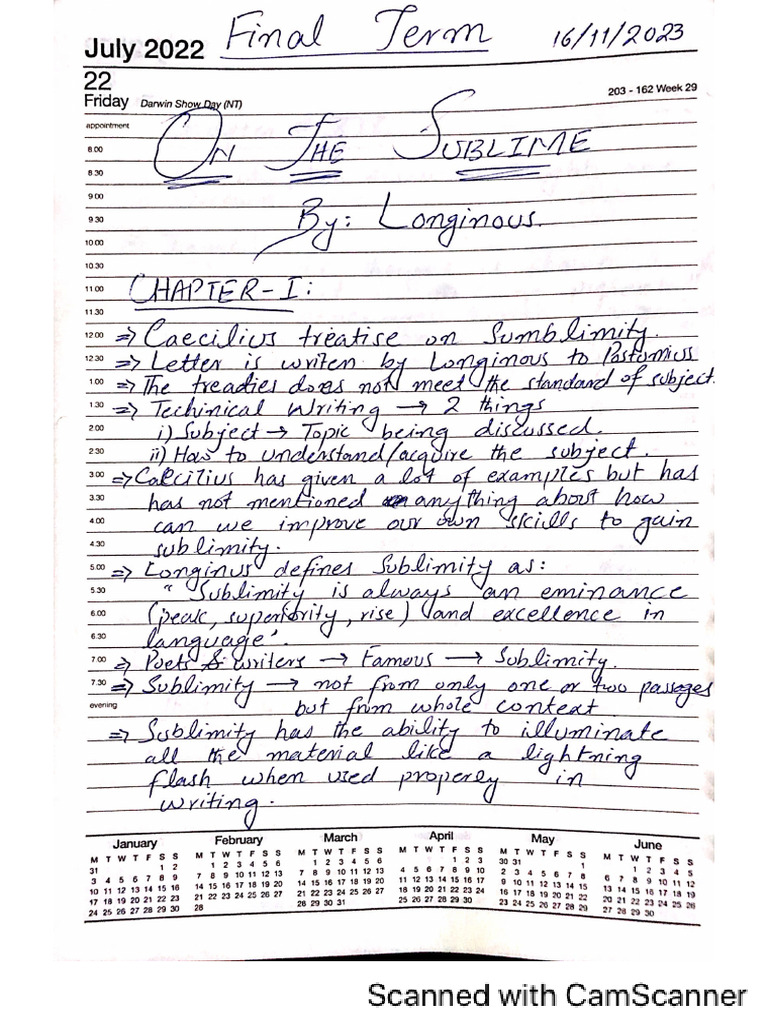 July 2022 Final Term 16/11/2023
22
Friday Darwin Show Day (NT) 203 - 162 Week 29
appointment
8.00 ON THE SUBLIME
8.30
9.00
9.30 By: Longinous.
10.00
10.30
11.00 CHAPTER-I:
11.30
12.00 ⇒ Caecilius treatise on Sumblimity.
12.30 ⇒ Letter is writen by Longinous to Postumius
1.00 ⇒ The treadies does not meet the standard of subject.
1.30 ⇒ Techinical Writing → 2 things
2.00 i) Subject → Topic being discussed.
2.30 ii) How to understand/acquire the subject.
3.00 ⇒ Caecilius has given a lot of examples but has
3.30 has not mentioned anything about how
4.00 can we improve our own skills to gain
4.30 sublimity.
5.00 ⇒ Longinus defines Sublimity as:
5.30 "Sublimity is always an eminance
6.00 (peak, superiority, rise) and excellence in
6.30 language'.
7.00 ⇒ Poets & writers → Famous → Sublimity.
7.30 ⇒ Sublimity → not from only one or two passages
evening but from whole context
⇒ Sublimity has the ability to illuminate
all the material like a lightning
flash when used properly in
writing.
January February March April May June
M T W T F S S M T W T F S S M T W T F S S M T W T F S S M T W T F S S M T W T F S S
31 1 2 1 2 3 4 5 6 1 2 3 4 5 6 1 2 3 30 31 1 1 2 3 4 5
3 4 5 6 7 8 9 7 8 9 10 11 12 13 7 8 9 10 11 12 13 4 5 6 7 8 9 10 2 3 4 5 6 7 8 6 7 8 9 10 11 12
10 11 12 13 14 15 16 14 15 16 17 18 19 20 14 15 16 17 18 19 20 11 12 13 14 15 16 17 9 10 11 12 13 14 15 13 14 15 16 17 18 19
17 18 19 20 21 22 23 21 22 23 24 25 26 27 21 22 23 24 25 26 27 18 19 20 21 22 23 24 16 17 18 19 20 21 22 20 21 22 23 24 25 26
24 25 26 27 28 29 30 28 28 29 30 31 25 26 27 28 29 30 23 24 25 26 27 28 29 27 28 29 30
Scanned with CamScanner